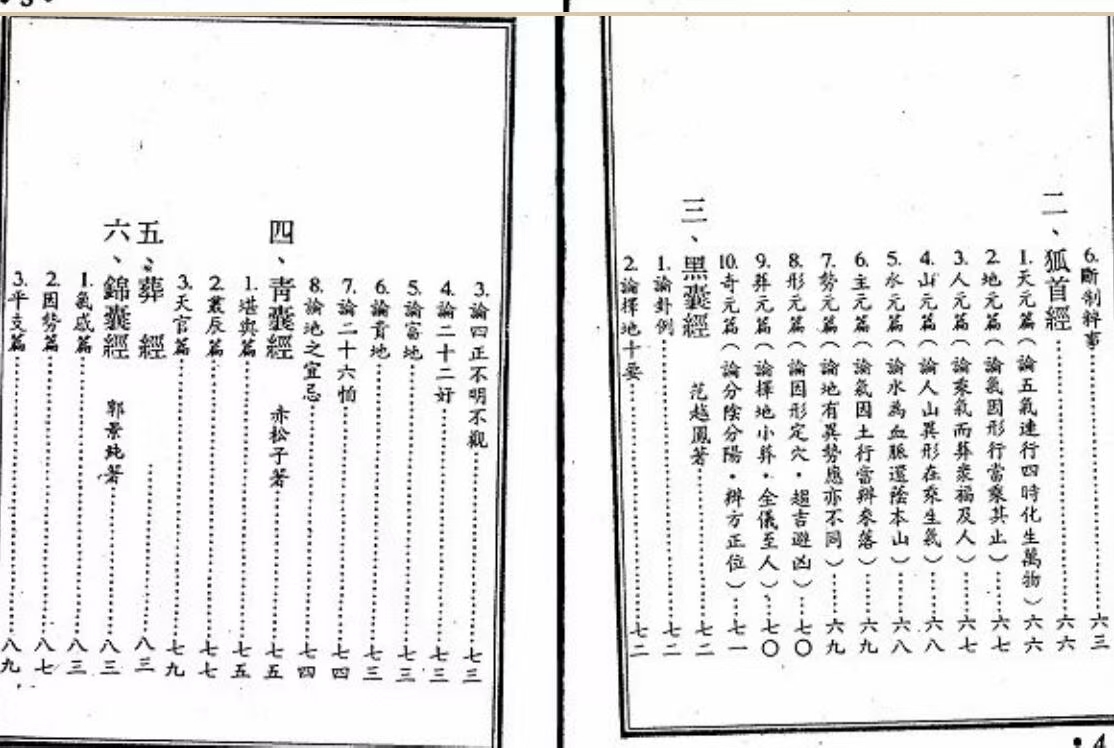 6.斷制粹事……六三
二、狐首經……六六
1.天元篇(論五氣連行四時化生萬物)……六六
2.地元篇(論氣因形行當乘其止)……六七
3.人元篇(論乘氣而葬衆福及人)……六七
4.山元篇(論人山異形在乘生氣)……六八
5.水元篇(論水為血脈還蔭本山)……六八
6.主元篇(論氣因土行當辨來落)……六九
7.勢元篇(論地有異勢應亦不同)……六九
8.形元篇(論因形定穴·趨吉避凶)……七〇
9.葬元篇(論擇地小葬·全儀至人)……七〇
10.奇元篇(論分陰分陽·辨方正位)……七一
三、黑囊經 范越鳳著……七二
1.論卦例……七二
2.論擇地十要……七二
3.論四正不明不觀……七三
4.論二十二好……七三
5.論富地……七三
6.論貴地……七三
7.論二十六怕……七四
8.論地之宜忌……七四
四、青囊經 赤松子著……七五
1.堪輿篇……七五
2.叢辰篇……七七
3.天官篇……七九
五、葬 經……八三
六、錦囊經 郭景純著……八三
1.氣感篇……八三
2.因勢篇……八七
3.平支篇……八九